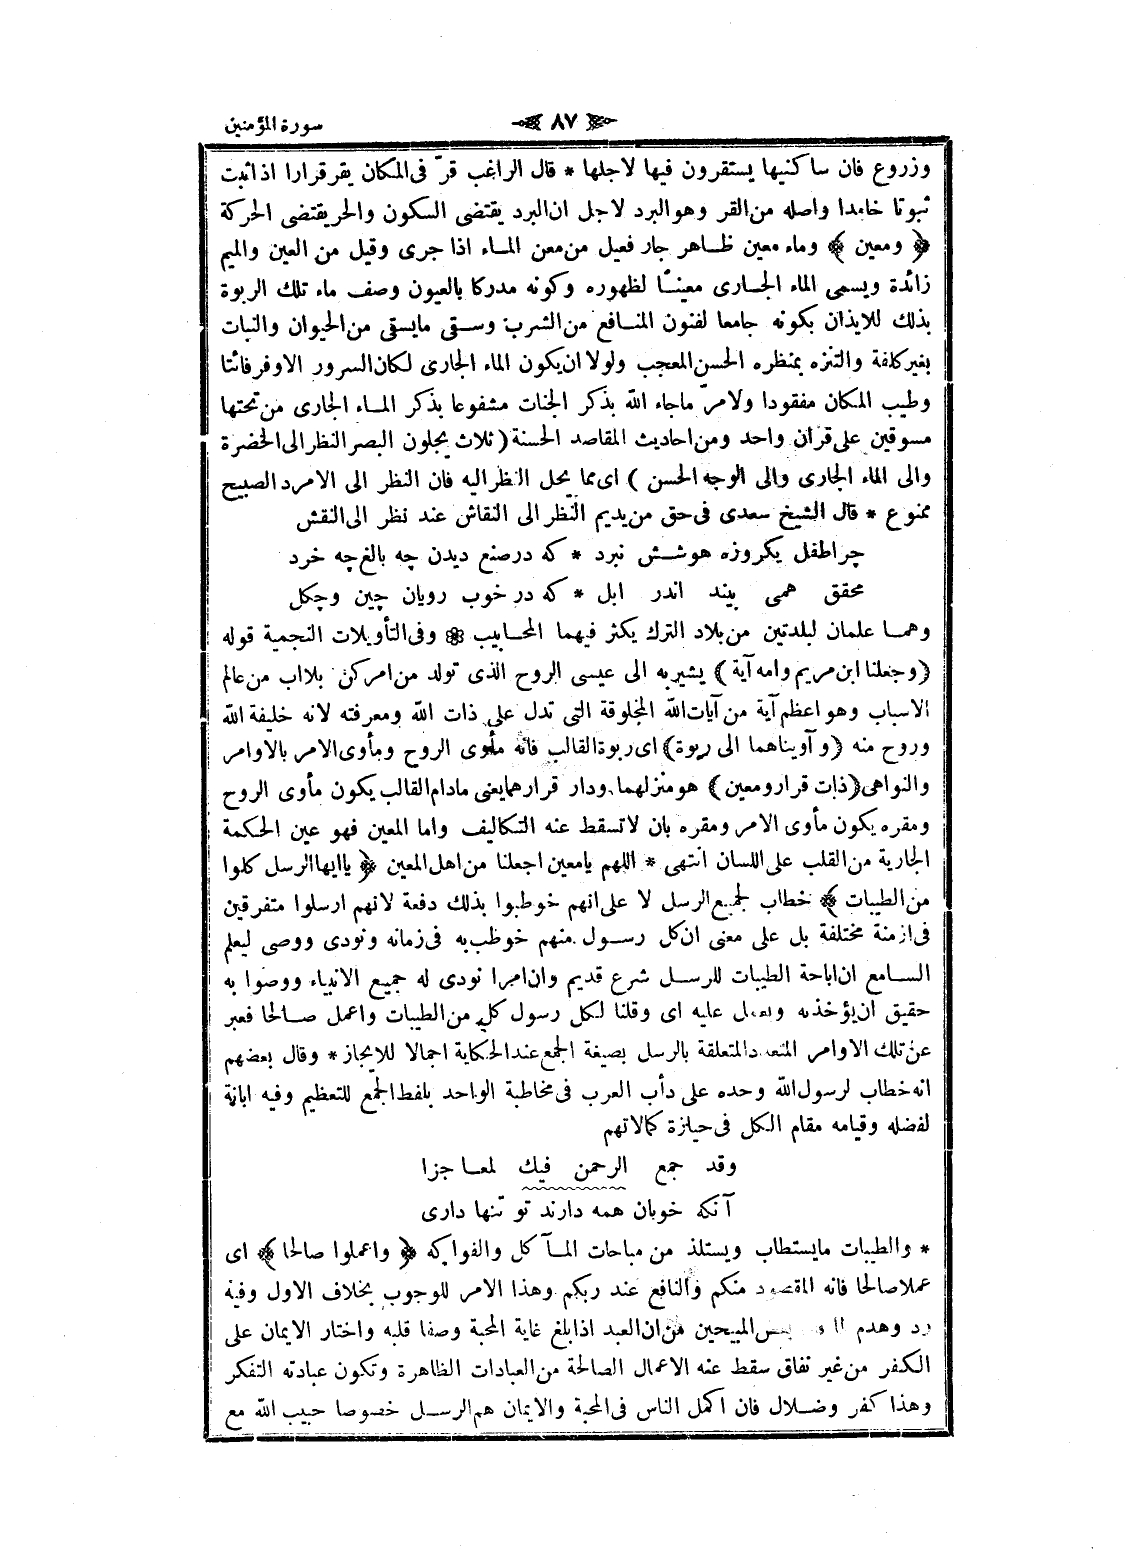 سورة المؤمنين
٨٧
وزروع فان ساكنيها يستقرون فيها لاجلها * قال الراغب قرّ فى المكان يقر قرارا اذا ثبت
ثبوتا خامدا واصله من القر وهو البرد لاجل ان البرد يقتضى السكون والحر يقتضى الحركة
﴿ ومعين ﴾ وماء معين ظاهر جار فعيل من معن الماء اذا جرى وقيل من العين والميم
زائدة ويسمى الماء الجارى معينا لظهوره وكونه مدركا بالعيون وصف ماء تلك الربوة
بذلك للايذان بكونه جامعا لفنون المنافع من الشرب وسقى مايسقى من الحيوان والنبات
بغير كلفة والتنزه بمنظره الحسن المعجب ولولا ان يكون الماء الجارى لكان السرور الاوفر فائتا
وطيب المكان مفقودا ولامرّ ماجاء الله بذكر الجنات مشفوعا بذكر الماء الجارى من تحتها
مسوقين على قران واحد ومن احاديث المقاصد الحسنة ( ثلاث يجلون البصر النظر الى الخضرة
والى الماء الجارى والى الوجه الحسن ) اى مما يحل النظر اليه فان النظر الى الامرد الصبيح
ممنوع * قال الشيخ سعدى فى حق من يديم النظر الى النقاش عند نظر الى النقش
چرا طفل يكروزه هوشش نبرد * كه در صنع ديدن چه بالغ چه خرد
محقق همى بيند اندر ابل * كه در خوب رويان چين وچكل
وهما علمان لبلدتين من بلاد الترك يكثر فيهما المحابيب ❀ وفى التأويلات النجمية قوله
( وجعلنا ابن مريم وامه آية ) يشير به الى عيسى الروح الذى تولد من امر كن بلا اب من عالم
الاسباب وهو اعظم آية من آيات الله المخلوقة التى تدل على ذات الله ومعرفته لانه خليفة الله
وروح منه ( وآويناهما الى ربوة ) اى ربوة القالب فانه مأوى الروح ومأوى الامر بالاوامر
والنواهى ( ذات قرار ومعين ) هو منزلهما ودار قرارهما يعنى مادام القالب يكون مأوى الروح
ومقره يكون مأوى الامر ومقره بان لاتسقط عنه التكاليف واما المعين فهو عين الحكمة
الجارية من القلب على اللسان انتهى * اللهم يامعين اجعلنا من اهل المعين ﴿ ياايها الرسل كلوا
من الطيبات ﴾ خطاب لجميع الرسل لا على انهم خوطبوا بذلك دفعة لانهم ارسلوا متفرقين
فى ازمنة مختلفة بل على معنى ان كل رسول منهم خوطب به فى زمانه ونودى ووصى ليعلم
السامع ان اباحة الطيبات للرسل شرع قديم وان امرا نودى له جميع الانبياء ووصوا به
حقيق ان يؤخذ به ويعمل عليه اى وقلنا لكل رسول كل من الطيبات واعمل صالحا فعبر
عن تلك الاوامر المتعددة المتعلقة بالرسل بصيغة الجمع عند الحكاية اجمالا للايجاز * وقال بعضهم
انه خطاب لرسول الله وحده على دأب العرب فى مخاطبة الواحد بلفظ الجمع للتعظيم وفيه ابانة
لفضله وقيامه مقام الكل فى حيازة كمالاتهم
وقد جمع الرحمن فيك لمعاجزا
آنكه خوبان همه دارند تو تنها دارى
* والطيبات مايستطاب ويستلذ من مباحات المآكل والفواكه ﴿ واعملوا صالحا ﴾ اى
عملا صالحا فانه المقصود منكم والنافع عند ربكم وهذا الامر للوجوب بخلاف الاول وفيه
رد وهدم بعض المبيحين من ان العبد اذا بلغ غاية المحبة وصفا قلبه واختار الايمان على
الكفر من غير نفاق سقط عنه الاعمال الصالحة من العبادات الظاهرة وتكون عبادته التفكر
وهذا كفر وضلال فان اكمل الناس فى المحبة والايمان هم الرسل خصوصا حبيب الله مع